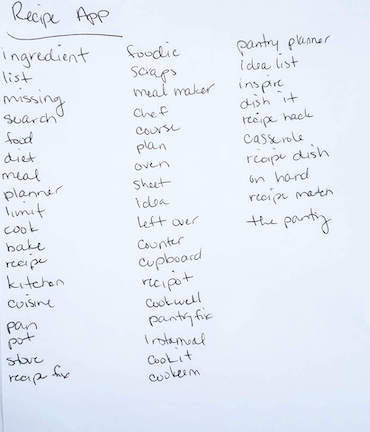 Recipe App
ingredient
list
missing
search
food
diet
meal
planner
limit
cook
bake
recipe
kitchen
cuisine
pan
pot
stove
recipe fix
foodie
scraps
meal maker
chef
course
plan
oven
sheet
idea
left over
counter
cupboard
recipot
cookwell
pantry fix
instameal
cook it
pantry planner
idea list
inspire
dish it
recipe hack
casserole
recipe dish
on hand
recipe match
the pantry